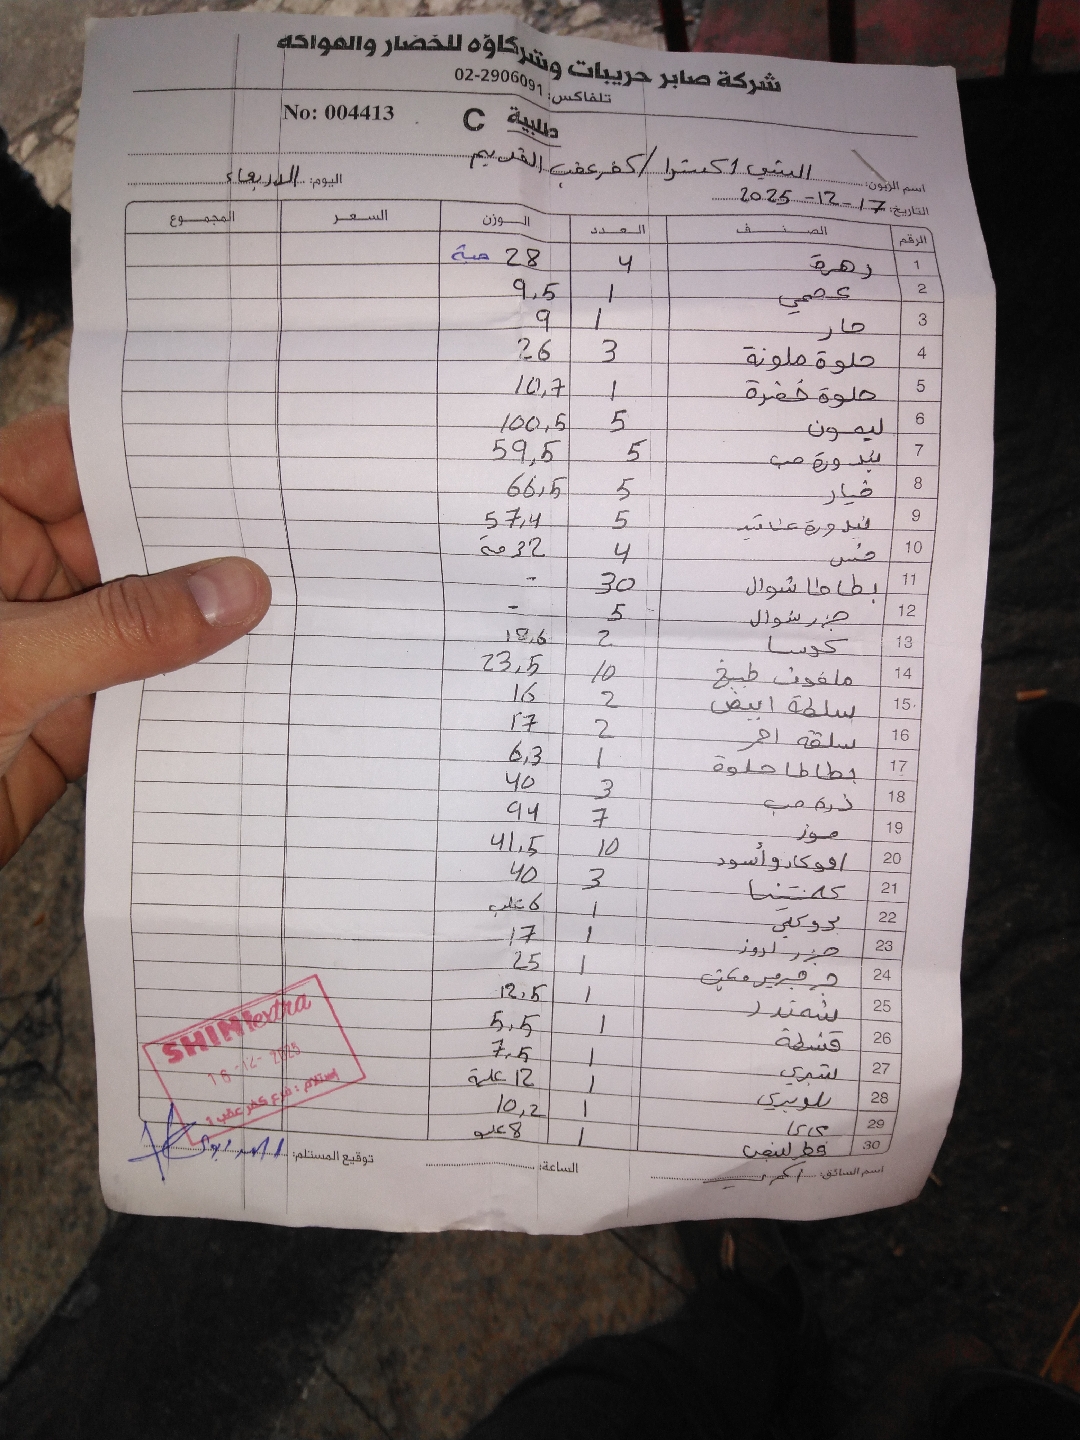 شركة صابر حريبات وشركاؤه للخضار والفواكه
تلفاكس: 02-2906091
No: 004413 C طلبية
اسم الزبون: الشني اكسترا / كفر عقب القديم
التاريخ: 17-12-2025 اليوم: الاربعاء
الرقم الصنف العدد الوزن السعر المجموع
1 زهرة 4 28 حبة
2 عجمي 1 9,5
3 حار 1 9
4 حلوة ملونة 3 26
5 حلوة خضرة 1 10,7
6 ليمون 5 100,5
7 بندورة حب 5 59,5
8 خيار 5 66,5
9 بندورة عناقيد 5 57,4
10 خس 4 32 حبة
11 بطاطا شوال 30 -
12 جزر شوال 5 -
13 كوسا 2 18,6
14 ملفوف طبيخ 10 23,5
15 سلطة ابيض 2 16
16 سلقه احمر 2 17
17 بطاطا حلوة 1 6,3
18 ذرة حب 3 40
19 موز 7 94
20 افوكادو أسود 10 41,5
21 كلمنتينا 3 40
22 بروكلي 1 6 علب
23 جزر 1 17
24 1 25
25 شمندر 1 12,5
26 قشطة 1 5,5
27 شيري 1 7,5
28 بلوبيري 1 12 علبة
29 1 10,2
30 فطر 1 8 علب
SHINI extra
16-12-2025
استلام: فرع كفر عقب 2
اسم السائق: الساعة: توقيع المستلم: